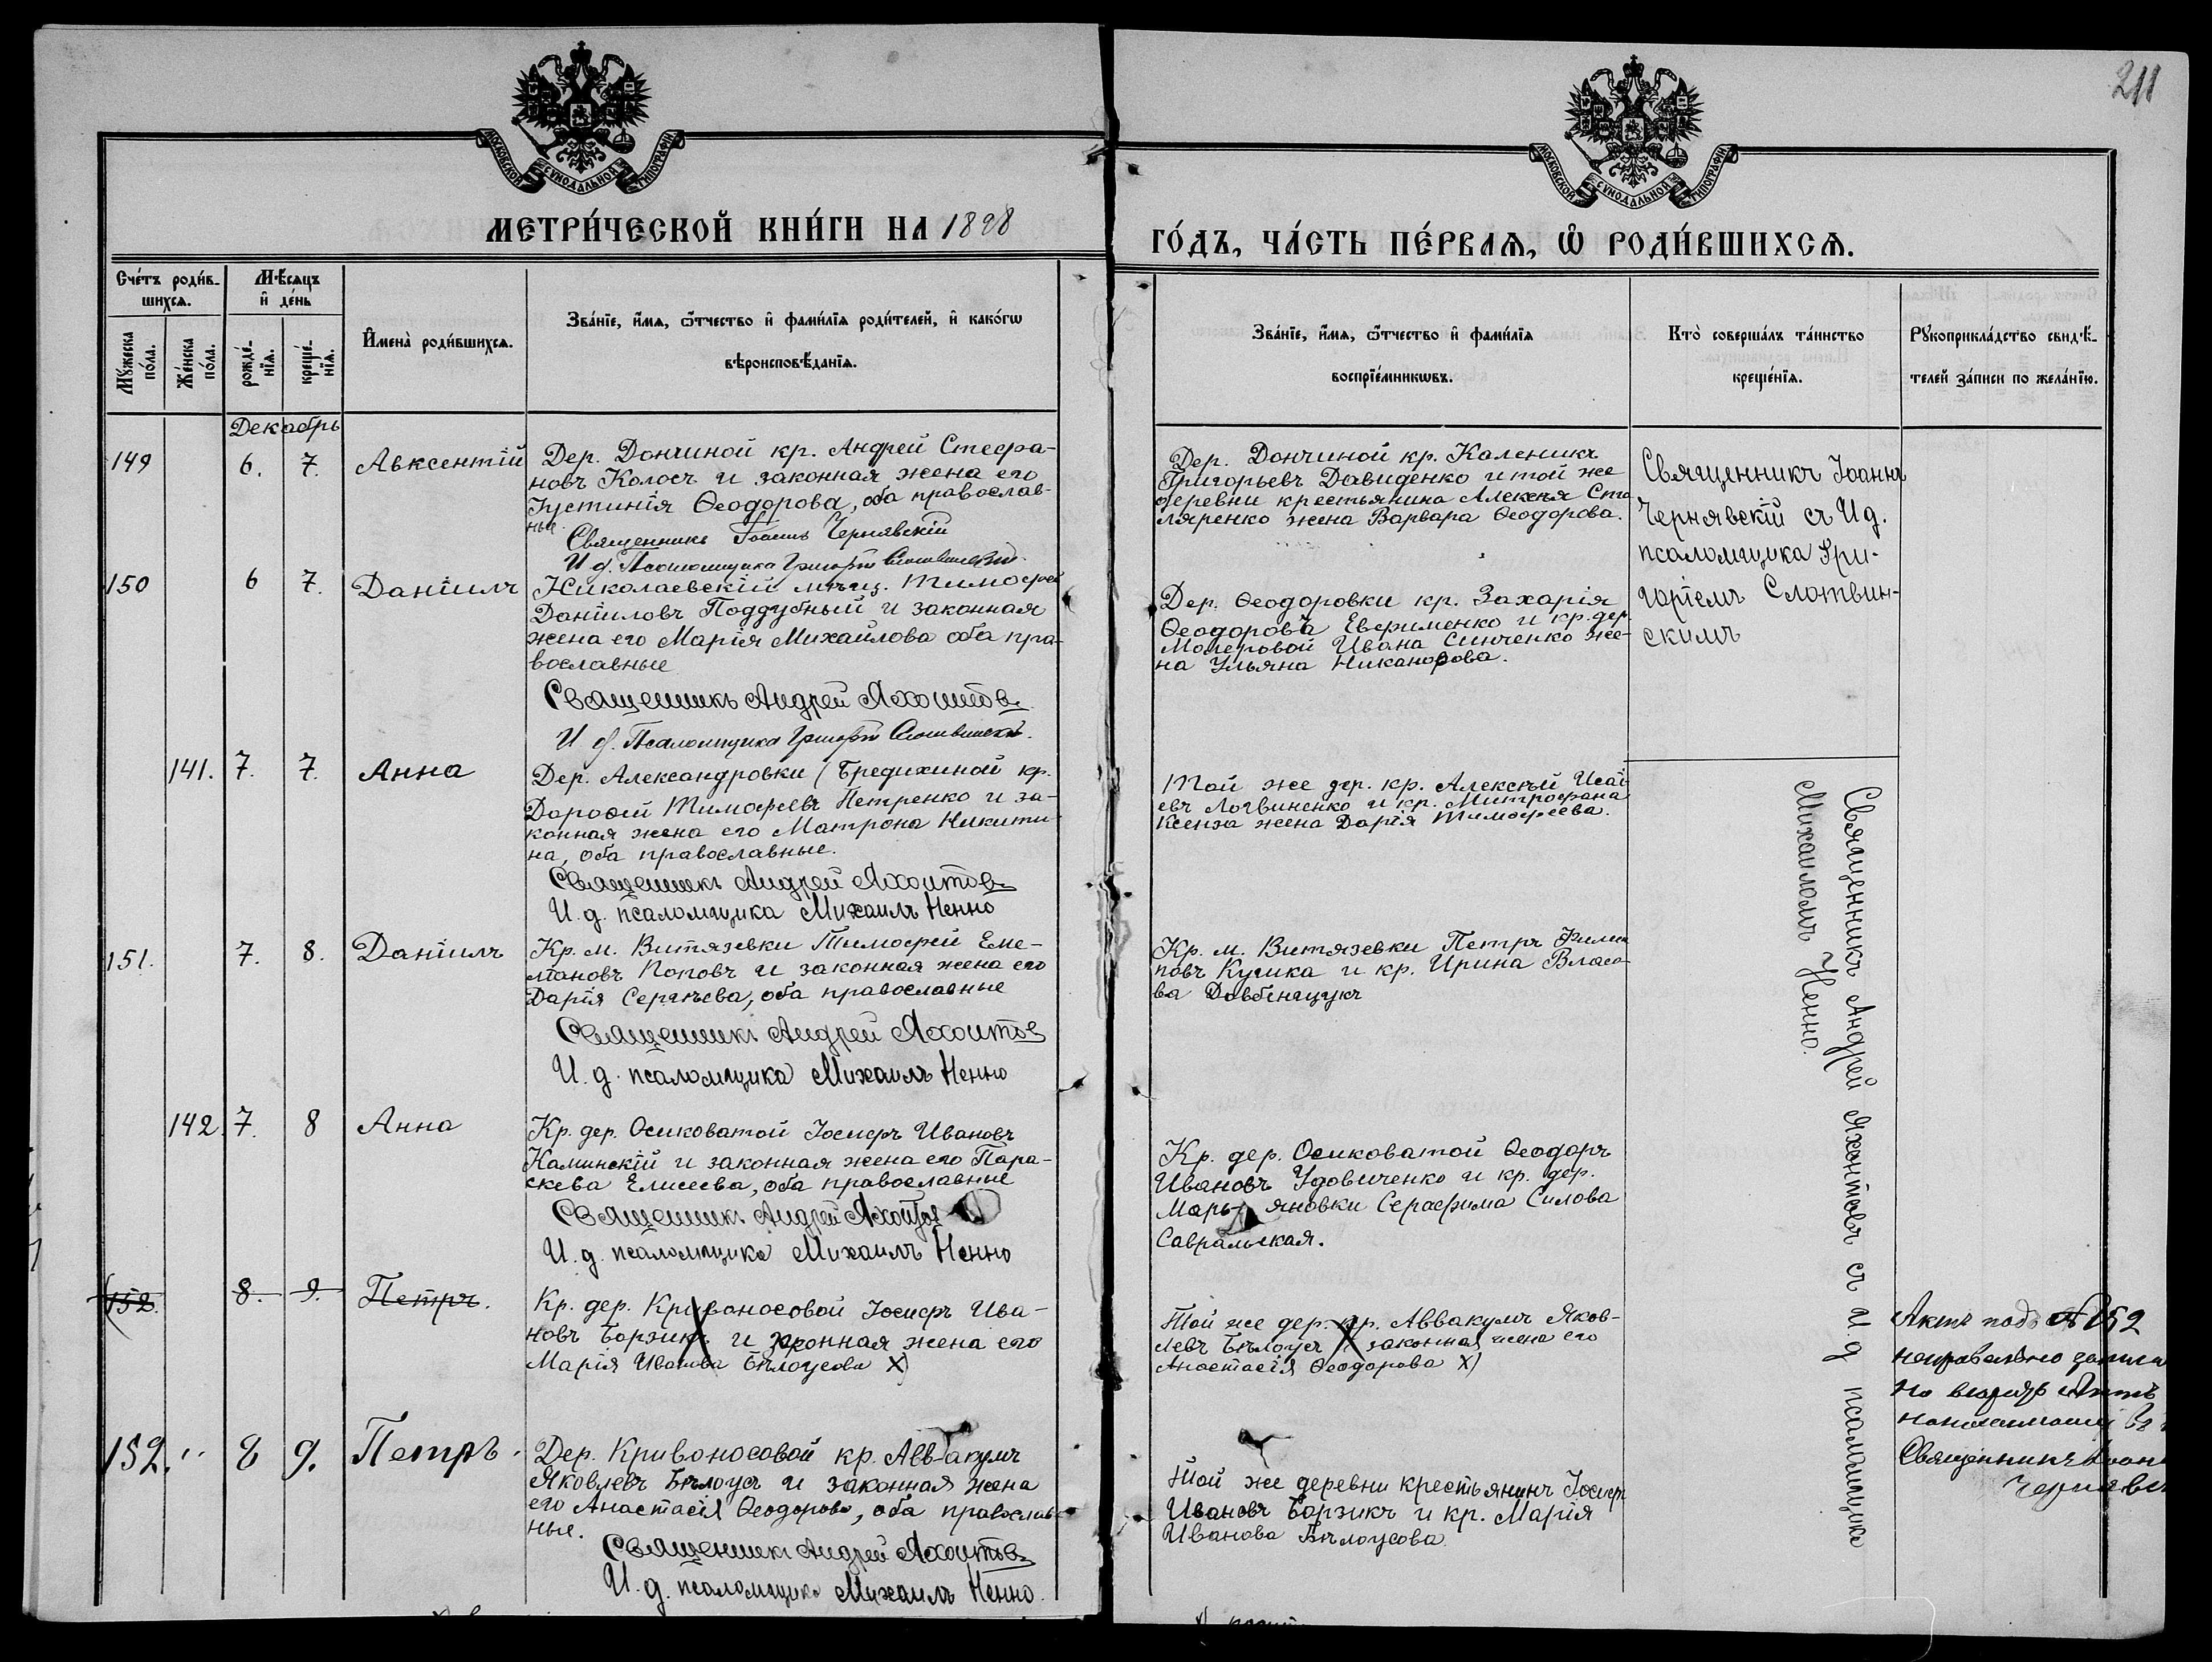 211
МОСКОВСКОЙ СѴНОДАЛЬНОЙ ТИПОГРАФІИ
МОСКОВСКОЙ СѴНОДАЛЬНОЙ ТИПОГРАФІИ
МЕТРИ́ЧЕСКОЙ КНИ́ГИ НА 1898
ГО́ДЪ, ЧА́СТЬ ПЕ́РВАѦ, Ѽ РОДИ́ВШИХСѦ.
Сче́тъ роди́в-
шихсѧ.
Мꙋжеска по́ла.
Же́нска по́ла.
М҄ѣсѧцъ
и҆ де́нь
рожде́-
нїѧ.
креще́-
нїѧ.
И҆мена̀ роди́вшихсѧ.
Зва́нїе, и҆́мѧ, ѻ҆́тчество и҆ фами́лїѧ роди́телей, и҆ како́гѡ
вѣроисповѣ́данїѧ.
Зва́нїе, и҆́мѧ, ѻ҆́тчество и҆ фами́лїѧ
воспрїе́мникѡвъ.
Кто̀ соверша́лъ та́инство
креще́нїѧ.
Рꙋкоприкла́дство свидѣ́-
телей за́писи по жела́нїю.
Декабрь
149 6. 7. Авксентій
Дер. Дончиной кр. Андрей Стефа-
новъ Колосъ и законная жена его
Іустинія Ѳеодорова, оба православ-
ные.
Священникъ Іоаннъ Чернявскій
И д. Псаломщика Григорій Слотвинскій.
Дер. Дончиной кр. Каленикъ
Григорьевъ Давиденко и той же
деревни крестьянина Алексѣя Сто
ляренко жена Варвара Ѳеодорова.
Священникъ Іоаннъ
Чернявскій съ И д.
псаломщика Гри-
горіемъ Слотвин-
скимъ
150 6 7. Даніилъ
Николаевскій мѣщ. Тимофей
Даніиловъ Поддубный и законная
жена его Марія Михайлова оба пра-
вославные
Священникъ Андрей Яхонтовъ
И д. Псаломщика Григорій Слотвинскій.
Дер. Ѳеодоровки кр. Захарія
Ѳеодоровъ Евфименко и кр. дер.
Молеровой Ивана Синченко же-
на Ульяна Никанорова.
141. 7. 7. Анна
Дер. Александровки (Бредихиной кр.
Дороѳей Тимофеевъ Петренко и за-
конная жена его Матрона Никити-
на, оба православные.
Священникъ Андрей Яхонтовъ
И. д. псаломщика Михаилъ Ненно
Той же дер. кр. Алексѣй Исаі-
евъ Логвиненко и кр. Митрофана
Ксенза жена Дарія Тимофеева.
Священникъ Андрей Яхонтовъ съ И. д псаломщика
Михаиломъ Ненно.
151. 7. 8. Даніилъ
Кр. м. Витязевки Тимофей Еме-
льяновъ Поповъ и законная жена его
Дарія Сергѣева, оба православные
Священникъ Андрей Яхонтовъ
И. д. псаломщика Михаилъ Ненно
Кр. м. Витязевки Петръ Филип
повъ Кушка и кр. Ирина Власо-
ва Довбенщукъ
142. 7. 8 Анна
Кр. дер. Осиковатой Іосифъ Ивановъ
Каминскій и законная жена его Пара-
скева Елисеева, оба православные
Священникъ Андрей Яхонтов
И. д. псаломщика Михаилъ Ненно
Кр. дер. Осиковатой Ѳеодоръ
Ивановъ Удовиченко и кр. дер.
Марь- яновки Серафима Силова
Савральская.
152. 8. 9. Петръ.
Кр. дер. Кривоносовой Іосифъ Ива-
новъ Борзикъ и законная жена его
Марія Иванова Бѣлоусова X)
Той же дер. кр. Аввакумъ Яков-
левъ Бѣлоусъ и законная жена его
Анастасія Ѳеодорова X)
Актъ подъ № 152
неправильно записа
Священникъ Іоан
Чернявск
152. 8 9. Петръ.
Дер. Кривоносовой кр. Авв-акумъ
Яковлевъ Бѣлоусъ и законная жена
его Анастасія Ѳеодорова, оба православ-
ные.
Священникъ Андрей Яхонтовъ
И. д. псаломщика Михаилъ Ненно.
Той же деревни крестьянинъ Іосифъ
Ивановъ Борзикъ и кр. Марія
Иванова Бѣлоусова.